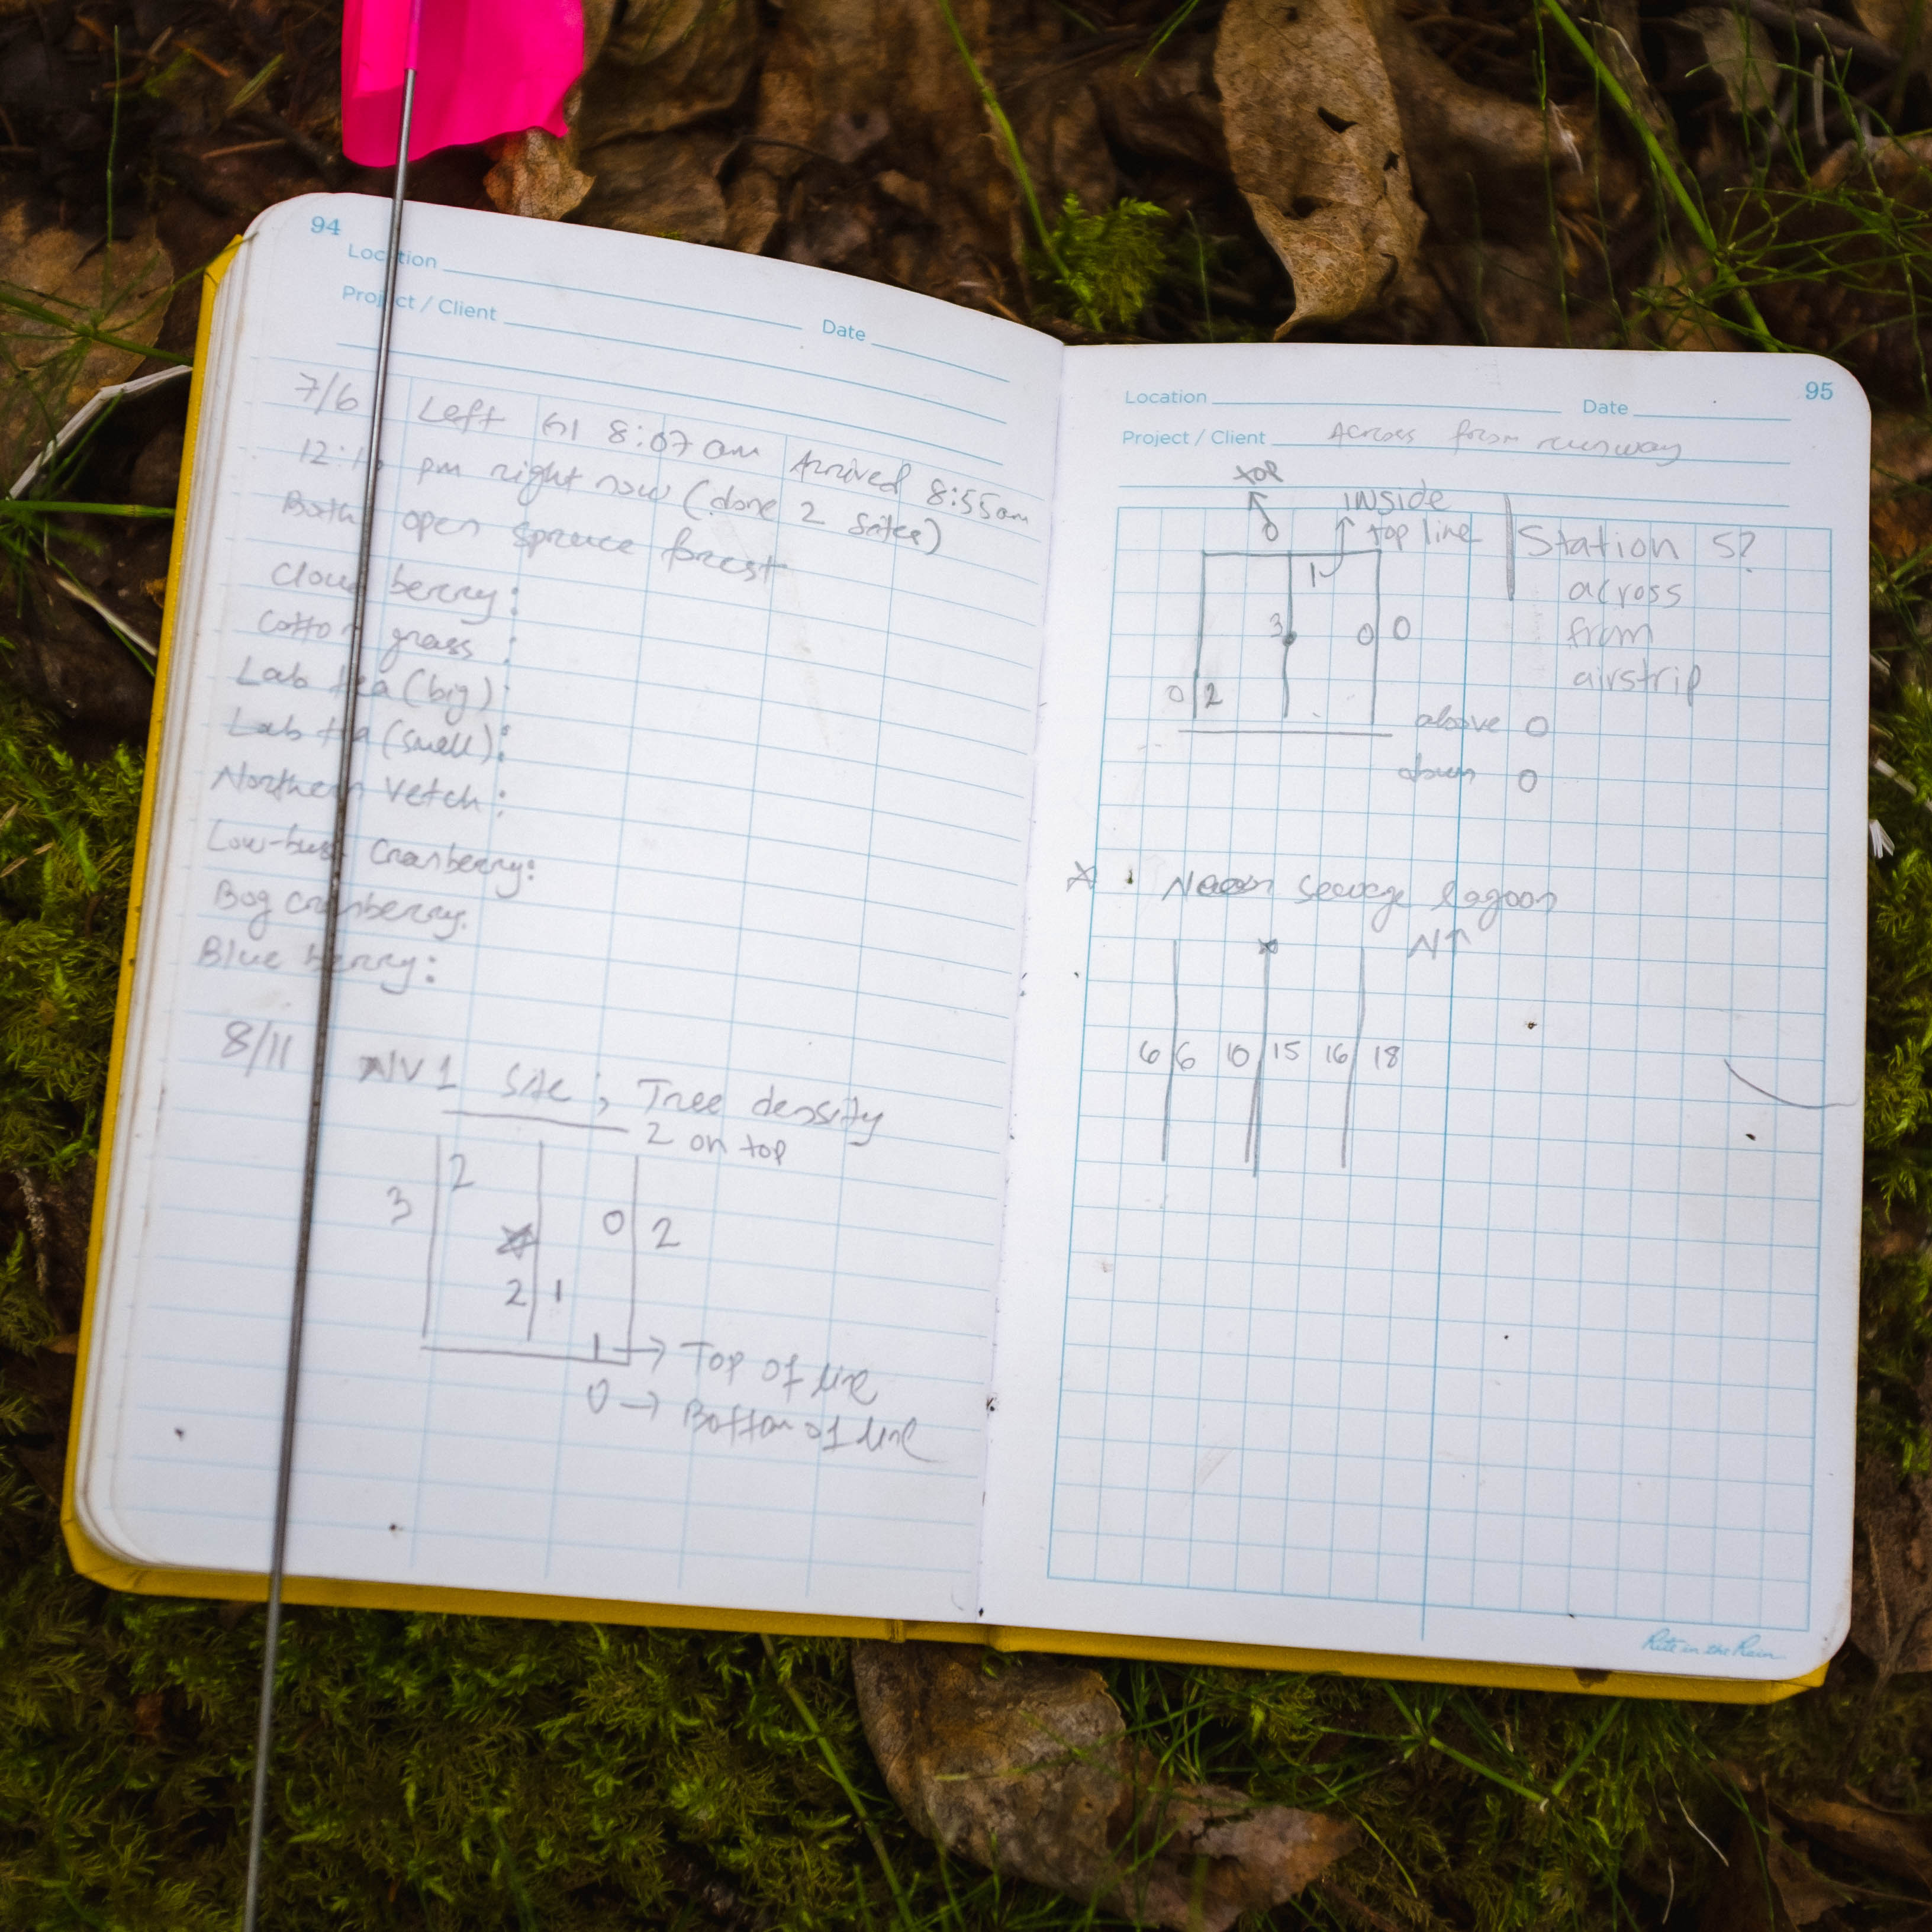 94
Location
Date
Project / Client
7/6 Left 8:07 am Arrived 8:55am
12:1 pm right now (done 2 sites)
Both open spruce forest
Cloud berry:
Cotton grass :
Lab tea (big):
Lab tea (small):
Northern Vetch:
Low-bush Cranberry:
Bog cranberry:
Blue berry:
8/11 NV1 Site ; Tree density
2 on top
3 2
0 2
2 1
1 → Top of line
0 → Bottom of line
95
Location
Date
Project / Client Across from runway
top
0
inside
top line
1
Station 5?
across
from
airstrip
3 0 0
0 2
above 0
down 0
Near sewage lagoon
N↑
6 6 10 15 16 18
Rite in the Rain